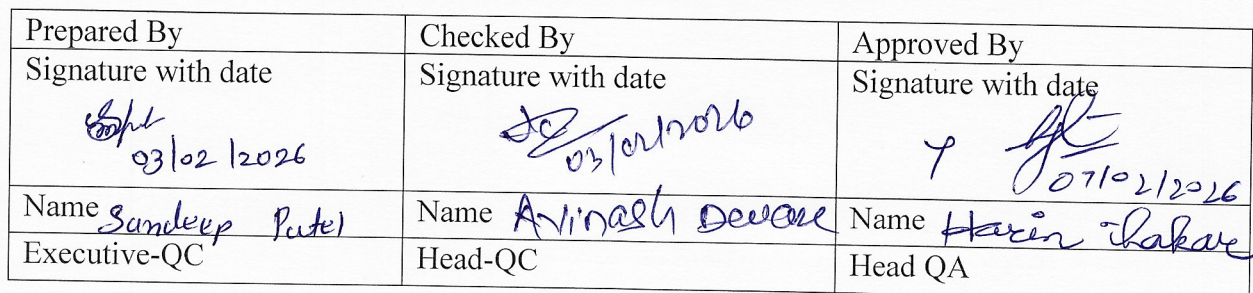 Prepared By
Checked By
Approved By
Signature with date
Signature with date
Signature with date
03/02/2026
03/02/2026
07/02/2026
Name Sandeep Patel
Name Avinash Deware
Name Harin Thakar
Executive-QC
Head-QC
Head QA